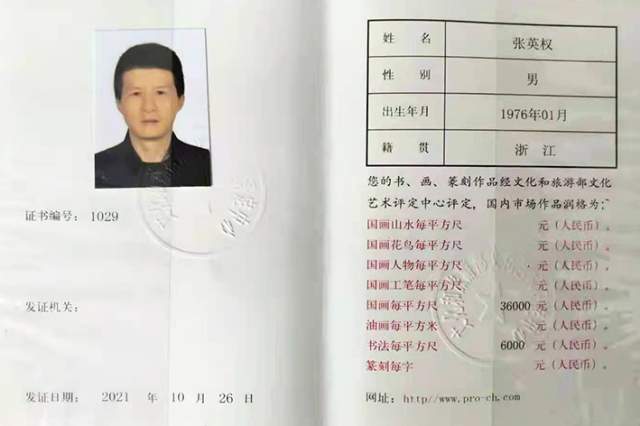 证书编号：1029
发证机关：
发证日期：2021 年 10 月 26 日
姓名 张英权
性别 男
出生年月 1976年01月
籍贯 浙江
您的书、画、篆刻作品经文化和旅游部文化
艺术评定中心评定，国内市场作品润格为：
国画山水每平方尺 元（人民币）。
国画花鸟每平方尺 元（人民币）。
国画人物每平方尺 元（人民币）。
国画工笔每平方尺 元（人民币）。
国画每平方尺 36000 元（人民币）。
油画每平方米 元（人民币）。
书法每平方尺 6000 元（人民币）。
篆刻每字 元（人民币）。
网址：http//www.pro-ch.com